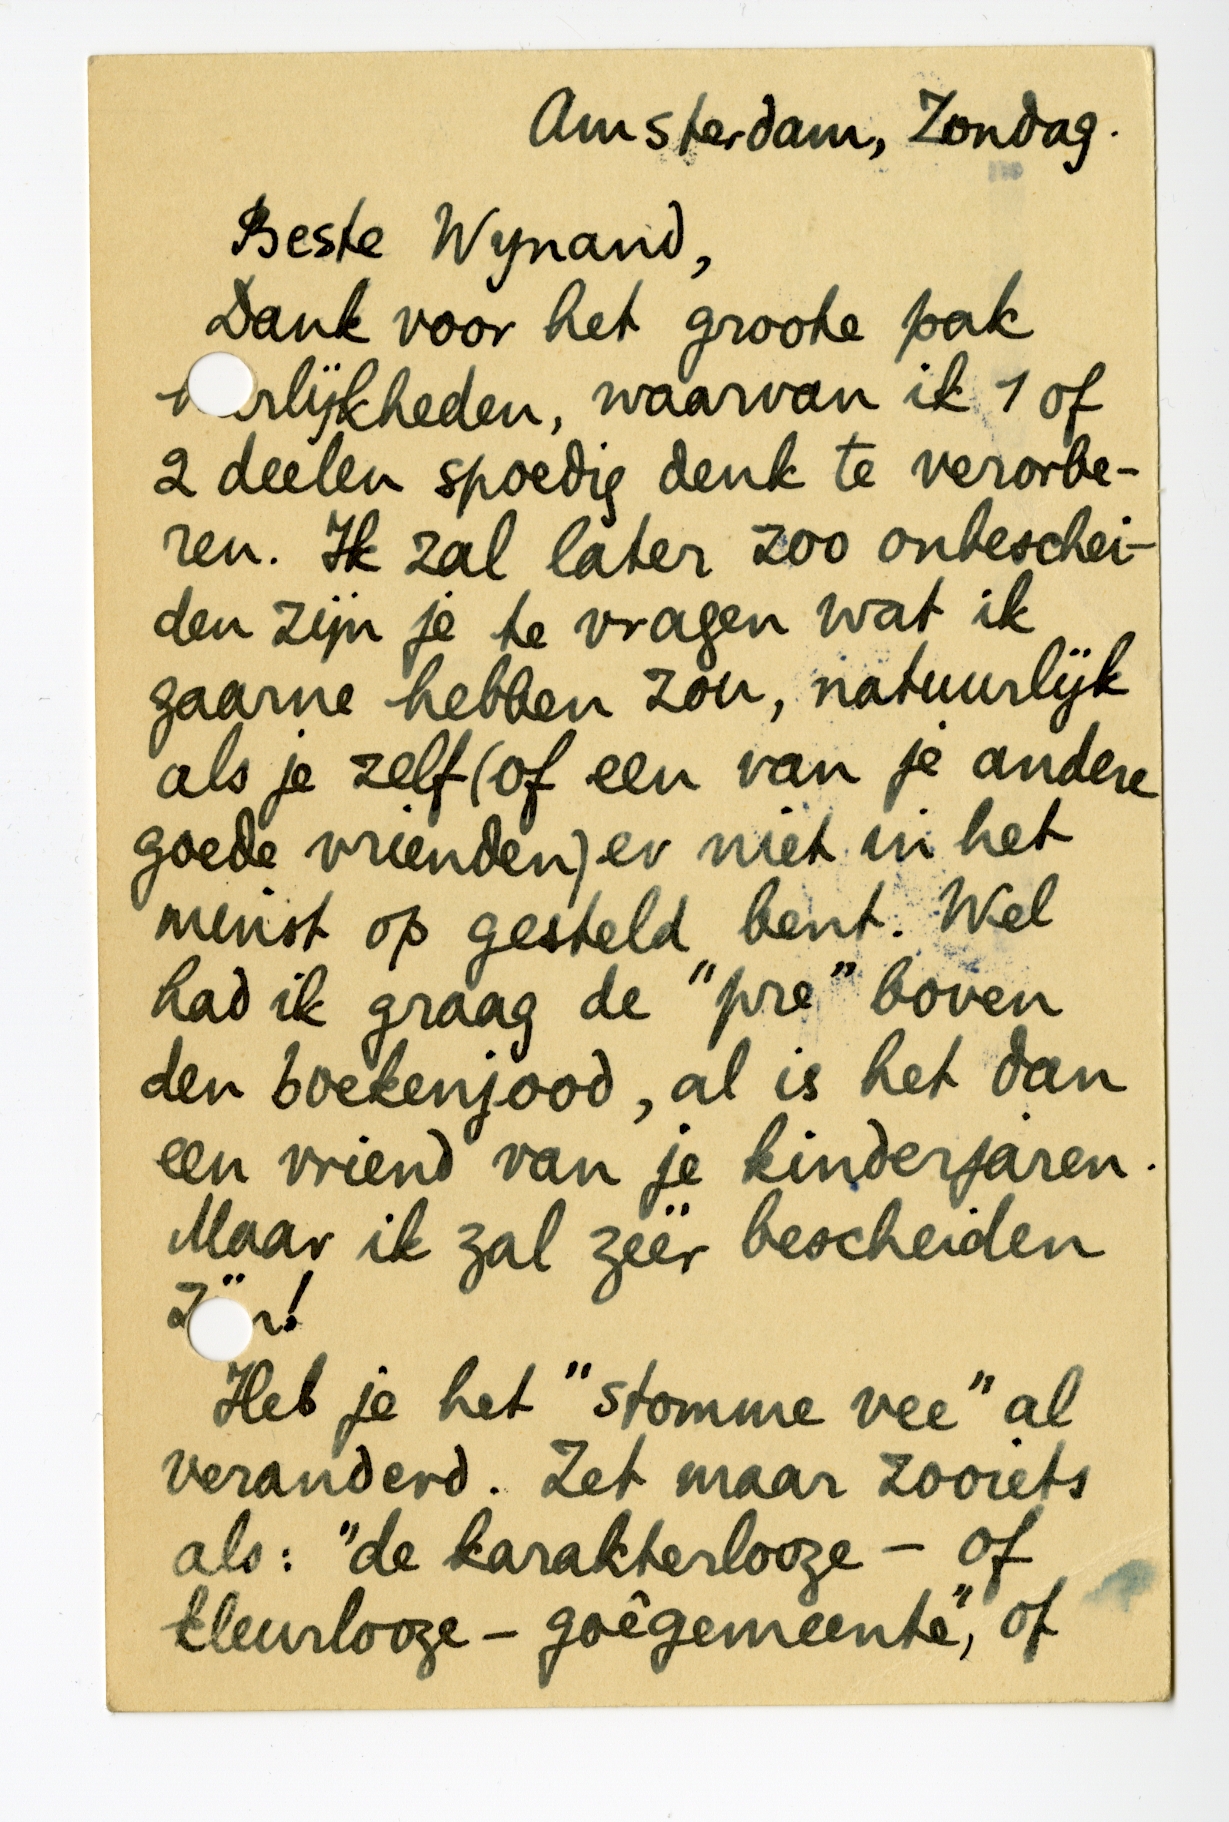 Amsterdam, Zondag.
Beste Wynand,
Dank voor het groote pak
heerlijkheden, waarvan ik 1 of
2 deelen spoedig denk te verorbe-
ren. Ik zal later zoo onbeschei-
den zijn je te vragen wat ik
gaarne hebben zou, natuurlijk
als je zelf (of een van je andere
goede vrienden) er niet in het
minst op gesteld bent. Wel
had ik graag de "pre" boven
den boekenjood, al is het dan
een vriend van je kinderjaren.
Maar ik zal zeër bescheiden
zijn!
Heb je het "stomme vee" al
veranderd. Zet maar zooiets
als: "de karakterlooze - of
kleurlooze - goêgemeente", of